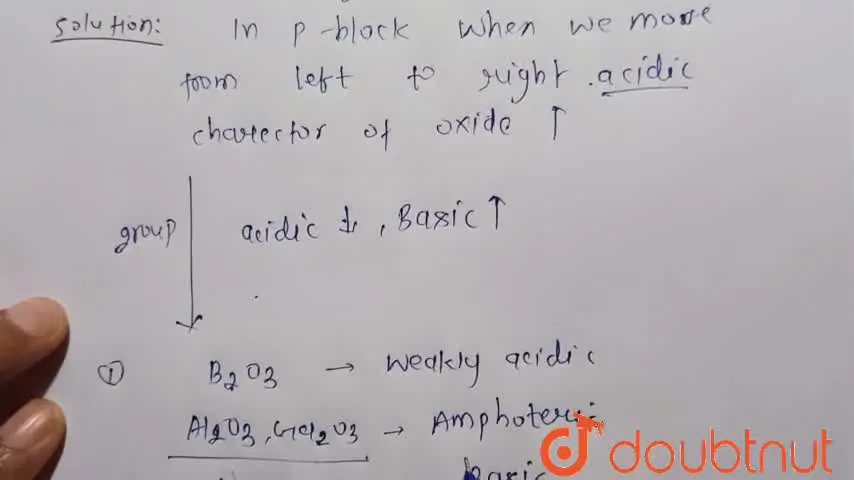 Solution: In p-block when we move
from left to right. acidic
charector of oxide ↑
group acidic ↓, Basic ↑
① B2O3 → Weakly acidic
Al2O3, Ga2O3 → Amphoteric
basic
doubtnut